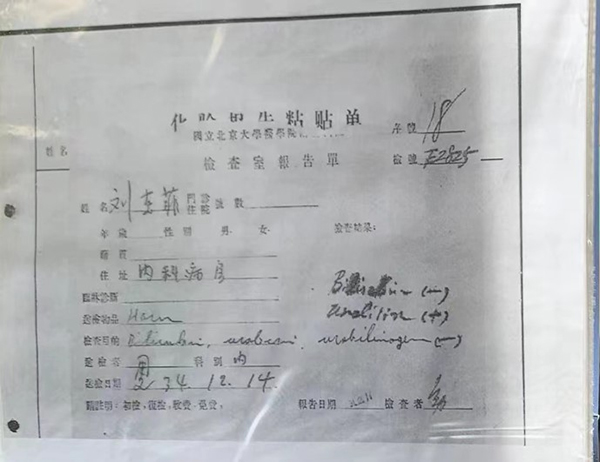 粘贴单
國立北京大學醫學院
序號 18
姓名
檢查室報告單
檢號 E2825
姓名 刘 菲 門診 住院 號數
年歲 性別 男 女 檢查結果:
籍貫
住址 内科病房
臨牀診斷 Bilirubin (—)
送檢物品 Harn Urobilin (+)
檢查目的 Bilirubin, urobilin, urobilinogen (—)
送檢者 周 科別 内
送檢日期 34.12.14.
附註明:初檢,復檢,收費,免費, 報告日期 檢查者